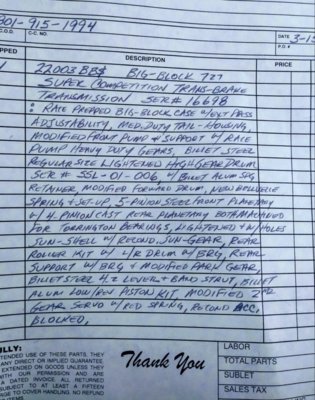 801-915-1994
C.O.D. C.C. NO. DATE 3-15
P.O.#
PPED DESCRIPTION PRICE
1 22003BB$ BIG-BLOCK 727
SUPER COMPETITION TRANS-BRAKE
TRANSMISSION SER# 16698
: RACE PREPPED BIG-BLOCK CASE W/EXT PASS
ADJUSTABILITY, MED. DUTY TAIL-HOUSING,
MODIFIED FRONT PUMP & SUPPORT W/RACE
PUMP HEAVY DUTY GEARS, BILLET STEEL
REGULAR SIZE LIGHTENED HIGH GEAR DRUM
SER # SSL-01-006, W/BILLET ALUM SPG
RETAINER, MODIFIED FORWARD DRUM, NEW BELLVELLE
SPRING & SET-UP, 5-PINION STEEL FRONT PLANETARY
W/4 PINION CAST REAR PLANETARY BOTH MACHINED
FOR TORRINGTON BEARINGS, LIGHTENED & W/HOLES
SUN-SHELL W/RECOND. SUN-GEAR, REAR
ROLLER KIT W/ L/R DRUM W/BRG, REAR
SUPPORT W/BRG & MODIFIED PARK GEAR,
BILLET STEEL 4.2 LEVER & BAND STRUT, BILLET
ALUM LOW/REV PISTON KIT, MODIFIED 2ND
GEAR SERVO W/RED SPRING, RECOND ACC,
BLOCKED.
ULLY: Thank You LABOR
TENDED USE OF THESE PARTS. THEY TOTAL PARTS
ANY DIRECT OR IMPLIED GUARANTEE.
EXTENDED ON GOODS UNLESS THEY
WITH OUR PERMISSION AND ARE SUBLET
A DATED INVOICE ALL RETURNED
SUBJECT TO AT LEAST A FIFTEEN SALES TAX
AGE TO COVER HANDLING. NO REFUND